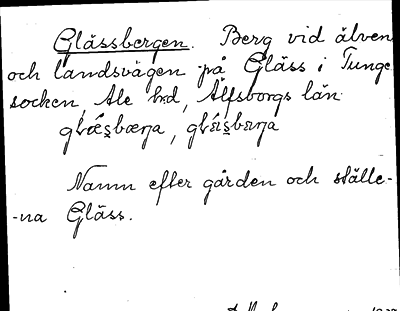 Glässbergen. Berg vid älven
och landsvägen på Gläss i Tunge
socken, Ale hrd, Älfsborgs län.
Namn efter gården och ställe-
-na Gläss.